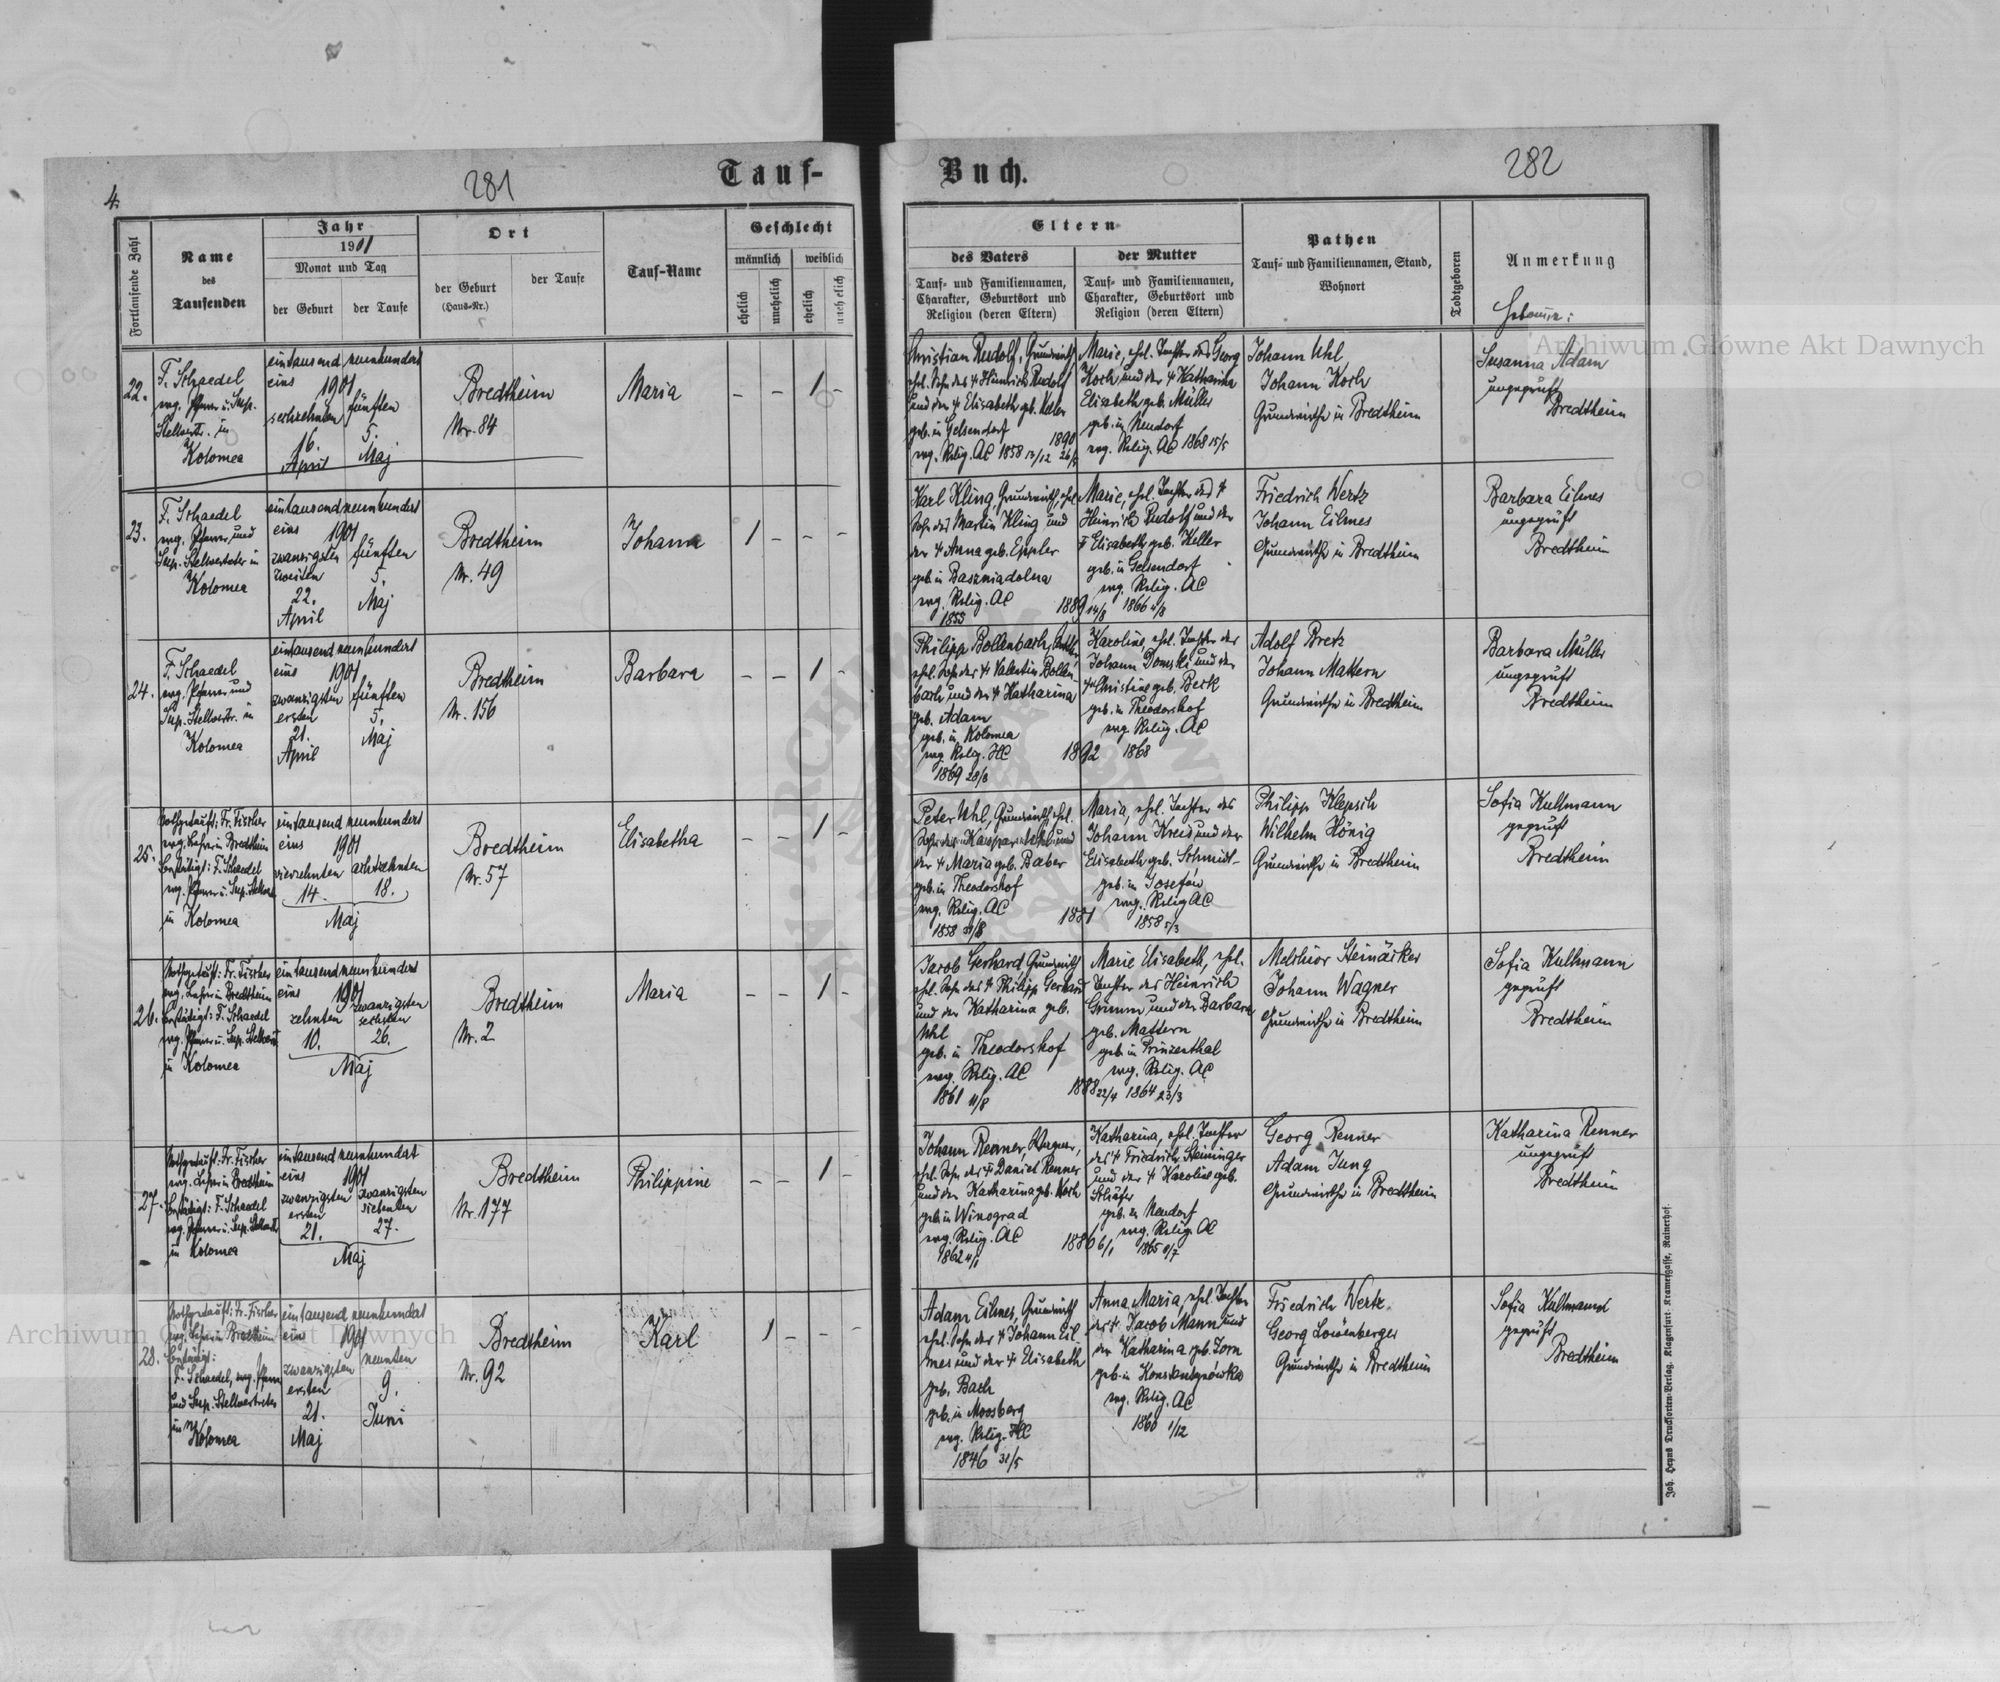 4.
281
Tauf-
Buch.
282
Fortlaufende Zahl
Name
des
Taufenden
Jahr
1901
Monat und Tag
der Geburt
der Taufe
Ort
der Geburt
(Haus-Nr.)
der Taufe
Tauf-Name
Geschlecht
männlich
weiblich
ehelich
unehelich
ehelich
unehelich
Eltern
des Vaters
Tauf- und Familiennamen,
Charakter, Geburtsort und
Religion (deren Eltern)
der Mutter
Tauf- und Familiennamen,
Charakter, Geburtsort und
Religion (deren Eltern)
Pathen
Tauf- und Familiennamen, Stand,
Wohnort
Todtgeboren
Anmerkung
22.
F. Schaedel
evg. Pfarrer u. Sup.
Stellvertr. in
Kolomea
eintausend neunhundert
eins 1901
sechzehnten fünften
16. 5.
April Maj
Bredtheim
Nr. 84
Maria
- - 1 -
Christian Rudolf, Grundwirth
ehel. Sohn des † Heinrich Rudolf
und der † Elisabeth geb. Keller
geb. in Gelsendorf
evg. Relig. AC 1858 12/12
1890
Marie, ehel. Tochter des Georg
Koch und der † Katharina
Elisabeth geb. Müller
geb. in Neudorf
evg. Relig. AC 1868 15/5
Johann Uhl
Johann Koch
Grundwirthe in Bredtheim
Susanna Adam
ungeprüft
Bredtheim
23.
F. Schaedel
evg. Pfarrer und
Sup. Stellvertreter in
Kolomea
eintausend neunhundert
eins 1901
zwanzigsten fünften
zweiten 5.
22. Maj
April
Bredtheim
Nr. 49
Johann
1 - - -
Karl Kling, Grundwirth, ehel.
Sohn des Martin Kling und
der † Anna geb. Eppler
geb. in Baszniadolna
evg. Relig. AC
1855
1889 14/8
Marie, ehel. Tochter des †
Heinrich Rudolf und der
† Elisabeth geb. Keller
geb. in Gelsendorf
evg. Relig. AC
1866 4/8
Friedrich Wertz
Johann Eilmes
Grundwirthe in Bredtheim
Barbara Eilmes
ungeprüft
Bredtheim
24.
F. Schaedel
evg. Pfarrer und
Sup. Stellvertr. in
Kolomea
eintausend neunhundert
eins 1901
zwanzigsten fünften
ersten 5.
21. Maj
April
Bredtheim
Nr. 156
Barbara
- - 1 -
Philipp Bollenbach,
ehel. Sohn der † Valentin Bollen-
bach und der † Katharina
geb. Adam
geb. in Kolomea
evg. Relig. HC
1869 28/8
1892
Karoline, ehel. Tochter des
Johann Domeski und der
† Christine geb. Beck
geb. in Theodorshof
evg. Relig. AC
1868
Adolf Bretz
Johann Mattern
Grundwirthe in Bredtheim
Barbara Müller
ungeprüft
Bredtheim
25.
Nothgetauft: Fr. Fischer
evg. Lehrer in Bredtheim
Bestätigt: F. Schaedel
evg. Pfarrer u. Sup. Stellvertr.
in Kolomea
eintausend neunhundert
eins 1901
vierzehnten achtzehnten
14. 18.
Maj
Bredtheim
Nr. 57
Elisabetha
- - 1 -
Peter Uhl, Grundwirth, ehel.
Sohn des Kaspar Uhl und
der † Maria geb. Baber
geb. in Theodorshof
evg. Relig. AC
1881
Maria, ehel. Tochter des
Johann Kreis und der
Elisabeth geb. Schmidt
geb. in Josefów
evg. Relig AC
1858 5/3
Philipp Klepsch
Wilhelm König
Grundwirthe in Bredtheim
Sofia Kullmann
geprüft
Bredtheim
26.
Nothgetauft: Fr. Fischer
evg. Lehrer in Bredtheim
Bestätigt: F. Schaedel
evg. Pfarrer u. Sup. Stellvertr.
in Kolomea
eintausend neunhundert
eins 1901
zehnten zwanzigsten
sechsten
10. 26.
Maj
Bredtheim
Nr. 2
Maria
- - 1 -
Jacob Gerhard, Grundwirth
ehel. Sohn des † Philipp Gerhard
und der Katharina geb.
Uhl
geb. in Theodorshof
evg. Relig. AC
1861 11/8
1888 22/4
Marie Elisabeth, ehel.
Tochter des Heinrich
Grimm und der Barbara
geb. Mattern
geb. in Prinzenthal
evg. Relig. AC
1864 23/3
Melchior Steinäcker
Johann Wagner
Grundwirthe in Bredtheim
Sofia Kullmann
geprüft
Bredtheim
27.
Nothgetauft: Fr. Fischer
evg. Lehrer in Bredtheim
Bestätigt: F. Schaedel
evg. Pfarrer u. Sup. Stellvertr.
in Kolomea
eintausend neunhundert
eins 1901
zwanzigsten zwanzigsten
ersten siebenten
21. 27.
Maj
Bredtheim
Nr. 177
Philippine
- - 1 -
Johann Renner, Wagner,
ehel. Sohn des † Daniel Renner
und der Katharina geb. Koch
geb. in Winograd
evg. Relig. AC
1862 4/1
1886 6/1
Katharina, ehel. Tochter
des † Friedrich Steininger
und der † Karoline geb.
Schäfer
geb. in Neudorf
evg. Relig. AC
1865 9/7
Georg Renner
Adam Jung
Grundwirthe in Bredtheim
Katharina Renner
ungeprüft
Bredtheim
28.
Nothgetauft: Fr. Fischer
evg. Lehrer in Bredtheim
Bestätigt:
F. Schaedel, evg. Pfarrer
und Sup. Stellvertreter
in Kolomea
eintausend neunhundert
eins 1901
zwanzigsten neunten
ersten 9.
21. Juni
Maj
Bredtheim
Nr. 92
Karl
1 - - -
Adam Eilmes, Grundwirth
ehel. Sohn der † Johann Eil
mes und der † Elisabeth
geb. Bach
geb. in Moosberg
evg. Relig. HC
1846 31/5
Anna Maria, ehel. Tochter
des † Jacob Mann und
der Katharina geb. Zorn
geb. in Konstantynówka
evg. Relig. AC
1860 1/12
Friedrich Wertz
Georg Löwenberger
Grundwirthe in Bredtheim
Sofia Kullmann
geprüft
Bredtheim
Joh. Heyns Drucksorten-Verlag, Klagenfurt, Kramergasse, Rainerhof.
Archiwum Główne Akt Dawnych
Archiwum Główne Akt Dawnych